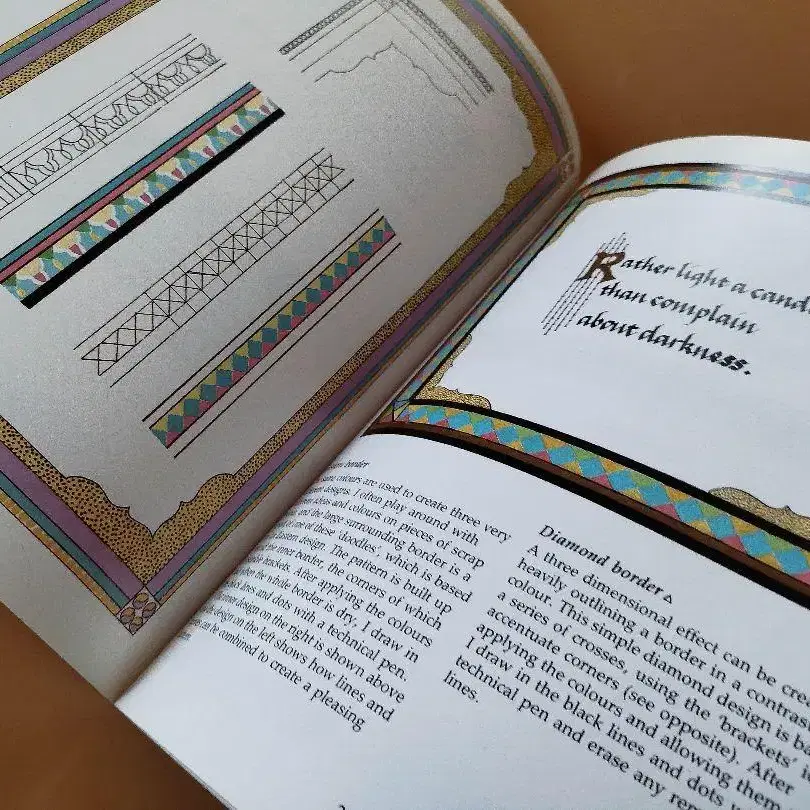 Rather light a
than complain
about darkness.
border
colours are used to create three very
designs. I often play around with
ideas and colours on pieces of scrap
and the large surrounding border is a
of these 'doodles', which is based
design. The pattern is built up
the inner border, the corners of which
brackets. After applying the colours
the whole border is dry, I draw in
lines and dots with a technical pen.
design on the right is shown above
design on the left shows how lines and
can be combined to create a pleasing
Diamond border
A three dimensional effect can be
heavily outlining a border in a
colour. This simple diamond design is
a series of crosses, using the 'brackets'
accentuate corners (see opposite). After
applying the colours and allowing them
I draw in the black lines and dots
technical pen and erase any
lines.